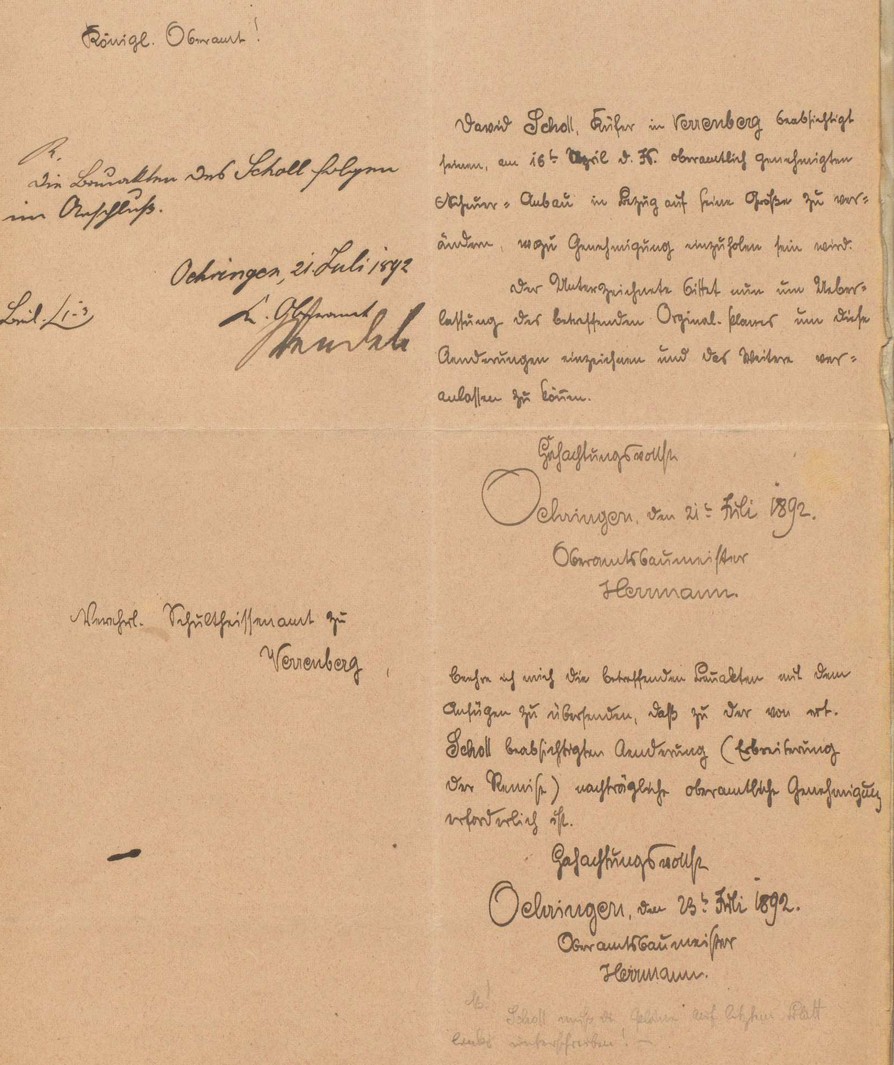 Königl. Oberamt!
David Scholl, Küfer in Verrenberg beabsichtigt
seinen, am 16t April d. Js. oberamtlich genehmigten
Scheuer-Anbau in Bezug auf seine Größe zu ver=
ändern, wozu Genehmigung einzuholen sein wird.
Der Unterzeichnete bittet nun um Ueber=
lassung des betreffenden Orginal-planes um diese
Aenderungen einzeichnen und das Weitere ver=
anlassen zu können.
Hochachtungsvollst
Oehringen, den 21t Juli 1892.
Oberamtsbaumeister
Herrmann.
R.
die Bauakten des Scholl folgen
im Anschluß.
Oehringen, 21. Juli 1892
K. Oberamt
Beil. 1-3
Verehrl. Schultheissenamt zu
Verrenberg
beehre ich mich die betreffenden Bauakten mit dem
Anfügen zu übersenden, daß zu der von
Scholl beabsichtigten Aenderung (Erbreiterung
der Remise) nachträgliche oberamtliche Genehmigung
erforderlich ist.
Hochachtungsvollst
Oehringen, den 23t Juli 1892.
Oberamtsbaumeister
Herrmann.
Scholl muß die Pläne auf letztem Blatt
links unterschreiben!